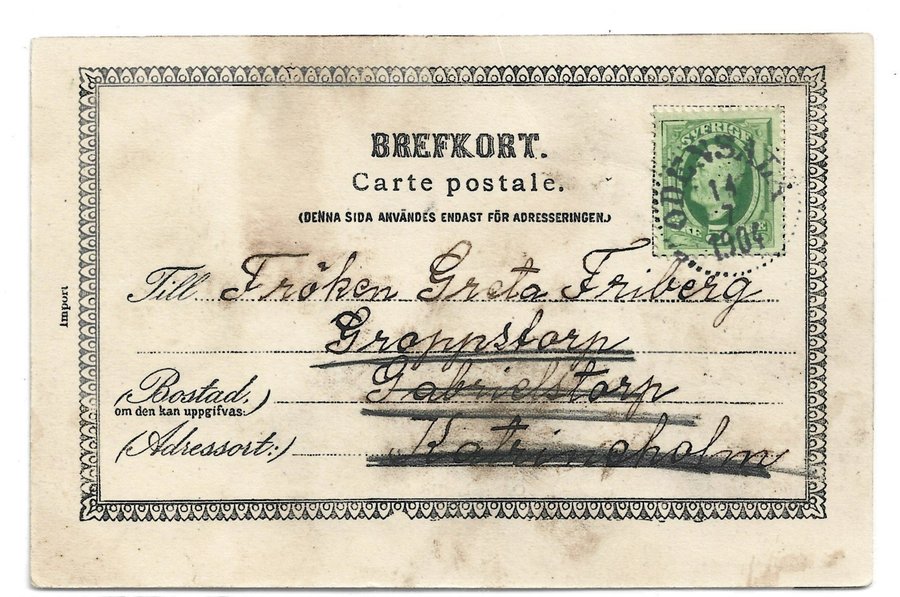 BREFKORT.
Carte postale.
(DENNA SIDA ANVÄNDES ENDAST FÖR ADRESSERINGEN.)
SVERIGE
ODENSALA
14
7
1904
Till Fröken Greta Friberg
Groppstorp
(Bostad,
om den kan uppgifvas:)
Gabrielstorp
(Adressort:)
Katrineholm
Import